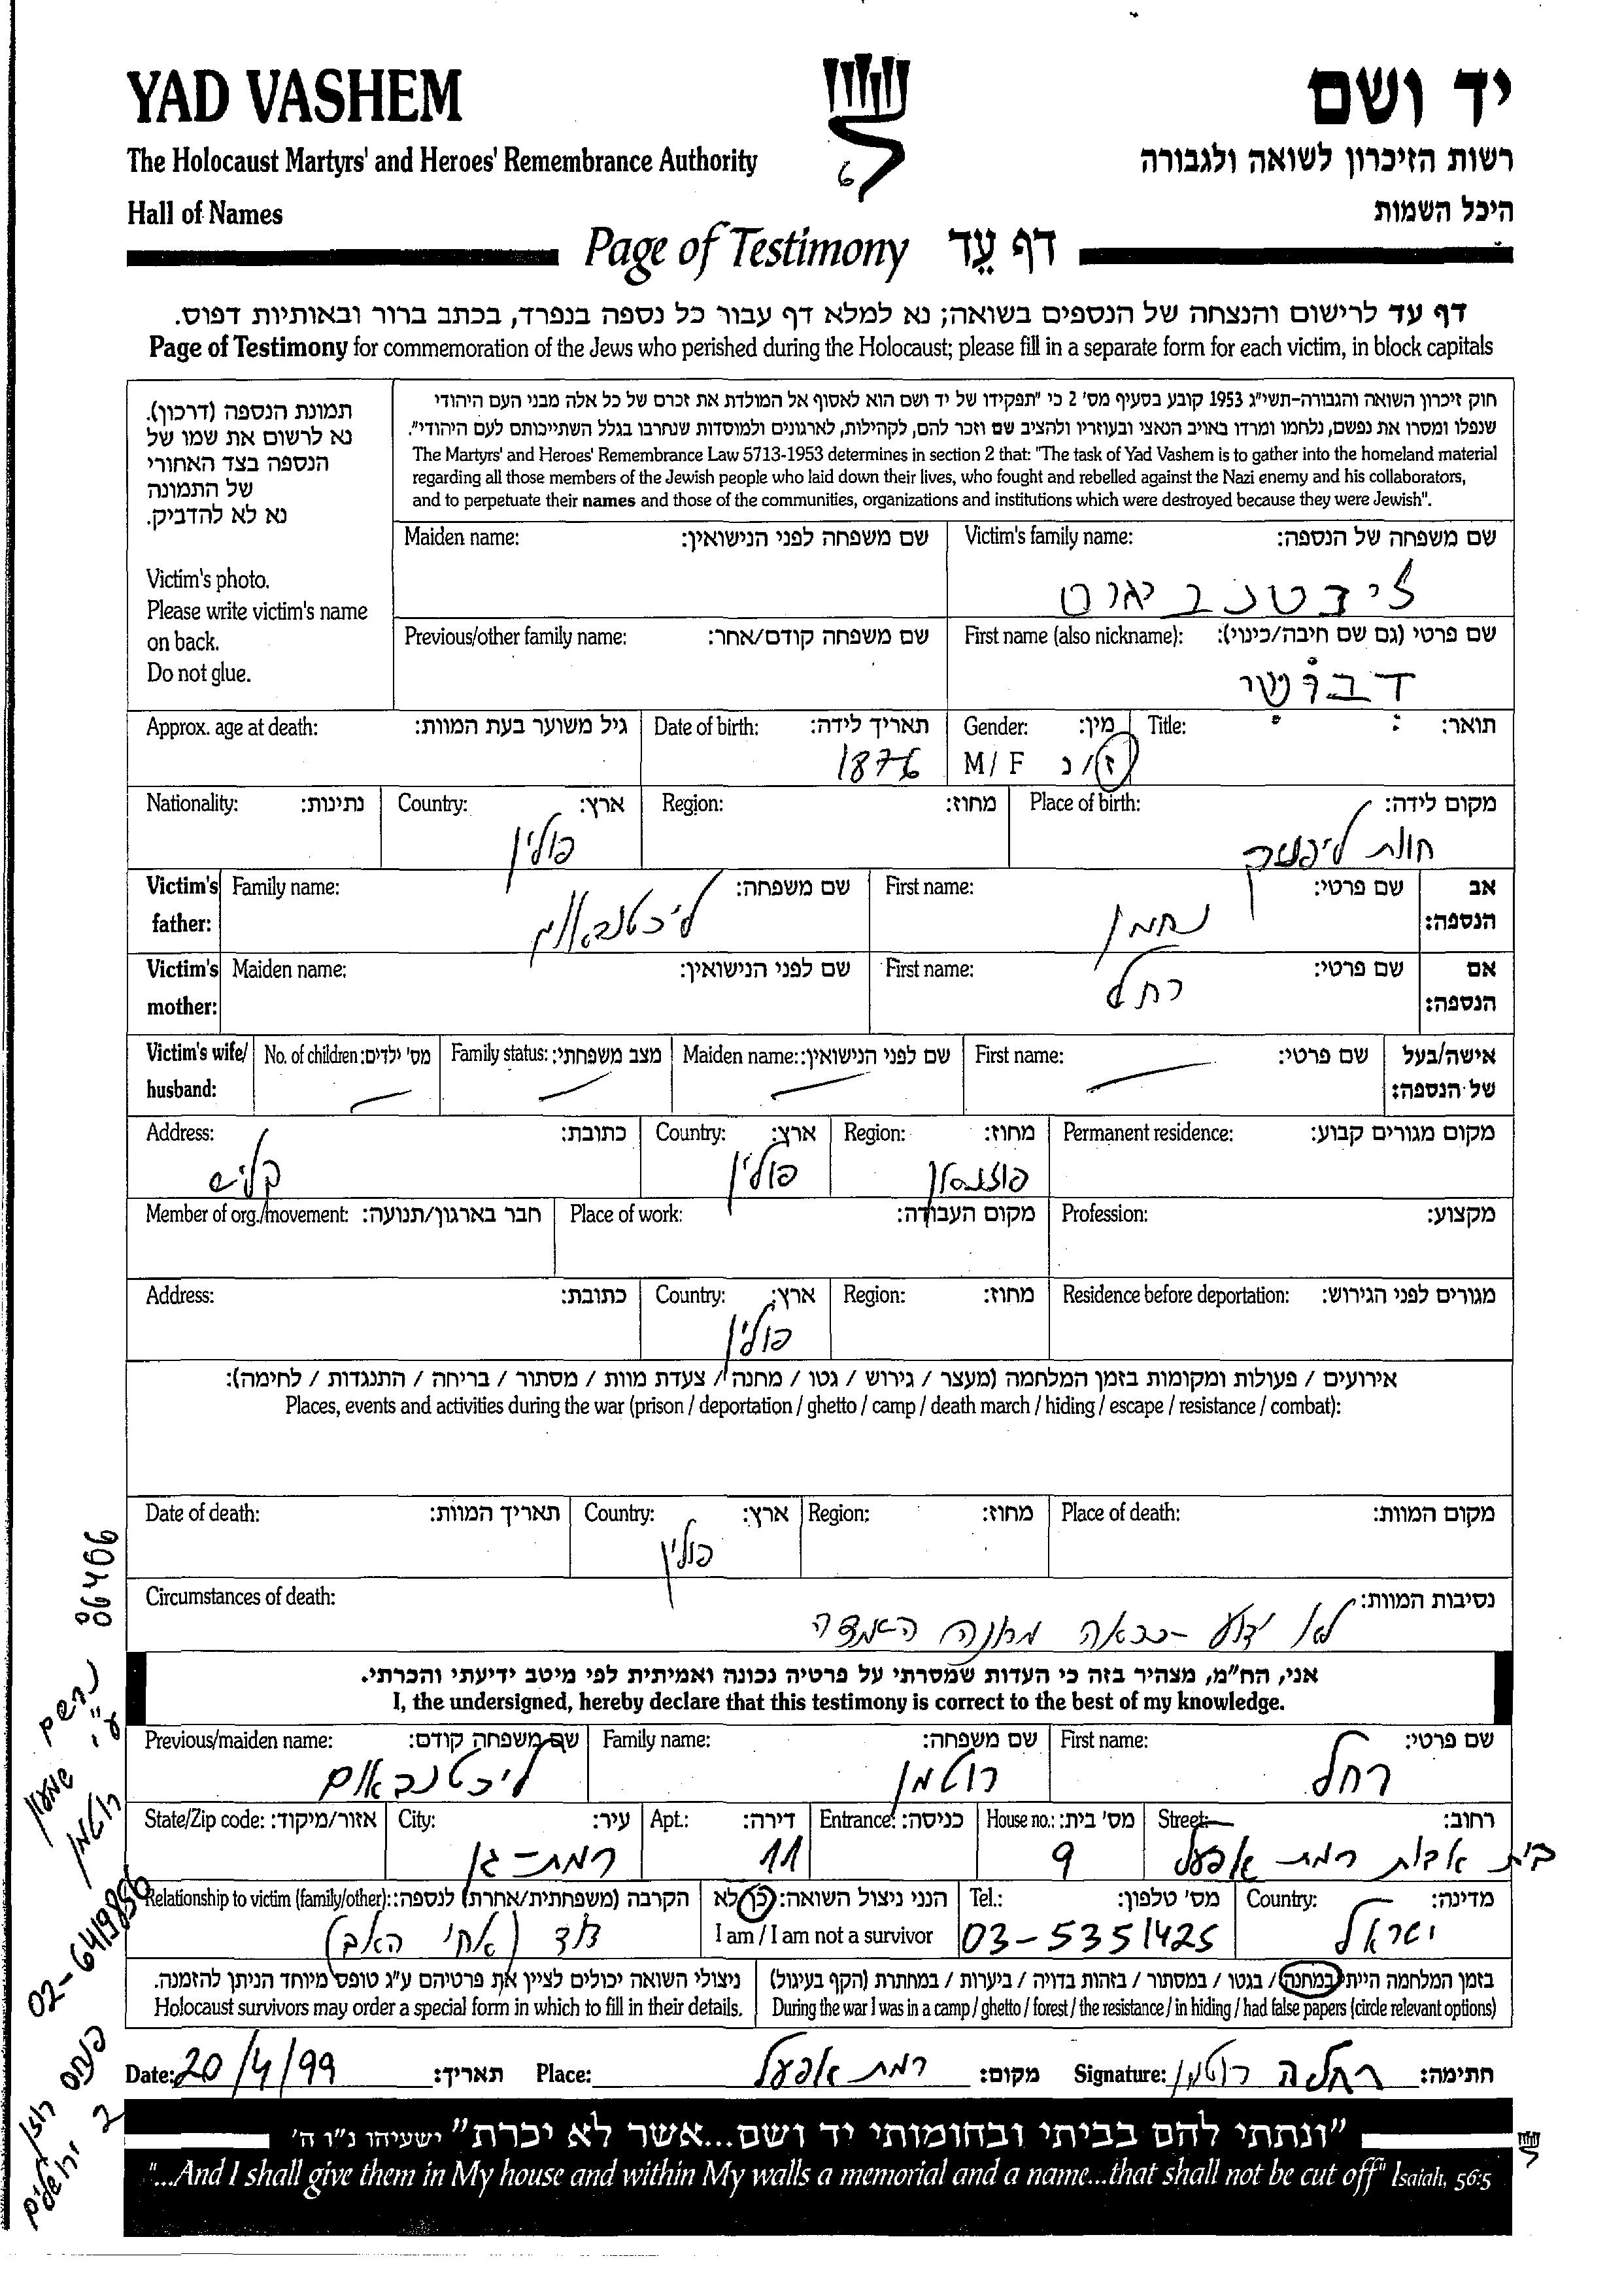 YAD VASHEM
יד ושם
The Holocaust Martyrs' and Heroes' Remembrance Authority
רשות הזיכרון לשואה ולגבורה
Hall of Names
היכל השמות
Page of Testimony דף עֵד
דף עד לרישום והנצחה של הנספים בשואה; נא למלא דף עבור כל נספה בנפרד, בכתב ברור ובאותיות דפוס.
Page of Testimony for commemoration of the Jews who perished during the Holocaust; please fill in a separate form for each victim, in block capitals
תמונת הנספה (דרכון).
נא לרשום את שמו של
הנספה בצד האחורי
של התמונה
נא לא להדביק.
Victim's photo.
Please write victim's name
on back.
Do not glue.
חוק זיכרון השואה והגבורה-תשי"ג 1953 קובע בסעיף מס' 2 כי "תפקידו של יד ושם הוא לאסוף אל המולדת את זכרם של כל אלה מבני העם היהודי
שנפלו ומסרו את נפשם, נלחמו ומרדו באויב הנאצי ובעוזריו ולהציב שם וזכר להם, לקהילות, לארגונים ולמוסדות שנחרבו בגלל השתייכותם לעם היהודי".
The Martyrs' and Heroes' Remembrance Law 5713-1953 determines in section 2 that: "The task of Yad Vashem is to gather into the homeland material
regarding all those members of the Jewish people who laid down their lives, who fought and rebelled against the Nazi enemy and his collaborators,
and to perpetuate their names and those of the communities, organizations and institutions which were destroyed because they were Jewish".
Maiden name: שם משפחה לפני הנישואין: Victim's family name: שם משפחה של הנספה:
Previous/other family name: שם משפחה קודם/אחר: First name (also nickname): שם פרטי (גם שם חיבה/כינוי):
Approx. age at death: גיל משוער בעת המוות: Date of birth: תאריך לידה: Gender: מין: Title: תואר:
1876 M / F ז / נ
Nationality: נתינות: Country: ארץ: Region: מחוז: Place of birth: מקום לידה:
פולין
Victim's father: Family name: שם משפחה: First name: שם פרטי: אב הנספה:
ליכטנבאום נחמן
Victim's mother: Maiden name: שם לפני הנישואין: First name: שם פרטי: אם הנספה:
רחל
Victim's wife/ husband: No. of children: מס' ילדים: Family status: מצב משפחתי: Maiden name: שם לפני הנישואין: First name: שם פרטי: אישה/בעל של הנספה:
Address: כתובת: Country: ארץ: Region: מחוז: Permanent residence: מקום מגורים קבוע:
קליש פולין פוזנן
Member of org./movement: חבר בארגון/תנועה: Place of work: מקום העבודה: Profession: מקצוע:
Address: כתובת: Country: ארץ: Region: מחוז: Residence before deportation: מגורים לפני הגירוש:
פולין
אירועים / פעולות ומקומות בזמן המלחמה (מעצר / גירוש / גטו / מחנה / צעדת מוות / מסתור / בריחה / התנגדות / לחימה):
Places, events and activities during the war (prison / deportation / ghetto / camp / death march / hiding / escape / resistance / combat):
Date of death: תאריך המוות: Country: ארץ: Region: מחוז: Place of death: מקום המוות:
פולין
Circumstances of death: נסיבות המוות:
לא ידוע - כנראה מחנה השמדה
אני, הח"מ, מצהיר בזה כי העדות שמסרתי על פרטיה נכונה ואמיתית לפי מיטב ידיעתי והכרתי.
I, the undersigned, hereby declare that this testimony is correct to the best of my knowledge.
Previous/maiden name: שם משפחה קודם: Family name: שם משפחה: First name: שם פרטי:
ליכטנבאום רוטמן רחל
State/Zip code: אזור/מיקוד: City: עיר: Apt.: דירה: Entrance: כניסה: House no.: מס' בית: Street: רחוב:
רמת-גן 11 9 בית אבות רמת אפעל
Relationship to victim (family/other): הקרבה (משפחתית/אחרת) לנספה: הנני ניצול השואה: כן/לא Tel.: מס' טלפון: Country: מדינה:
דוד (אחי האב) I am / I am not a survivor 03-5351425 ישראל
ניצולי השואה יכולים לציין את פרטיהם ע"ג טופס מיוחד הניתן להזמנה. בזמן המלחמה הייתי במחנה / בגטו / במסתור / בזהות בדויה / ביערות / במחתרת (הקף בעיגול)
Holocaust survivors may order a special form in which to fill in their details. During the war I was in a camp / ghetto / forest / the resistance / in hiding / had false papers (circle relevant options)
Date: 20/4/99 תאריך: Place: רמת אפעל מקום: Signature: רחלה רוטמן חתימה:
"ונתתי להם בביתי ובחומותי יד ושם...אשר לא יכרת" ישעיהו נ"ו ה'
"...And I shall give them in My house and within My walls a memorial and a name...that shall not be cut off" Isaiah, 56:5
06406
נרשם ע"י שמעון רוטמן
02-6419856
פנחס רוזן 2 ירושלים